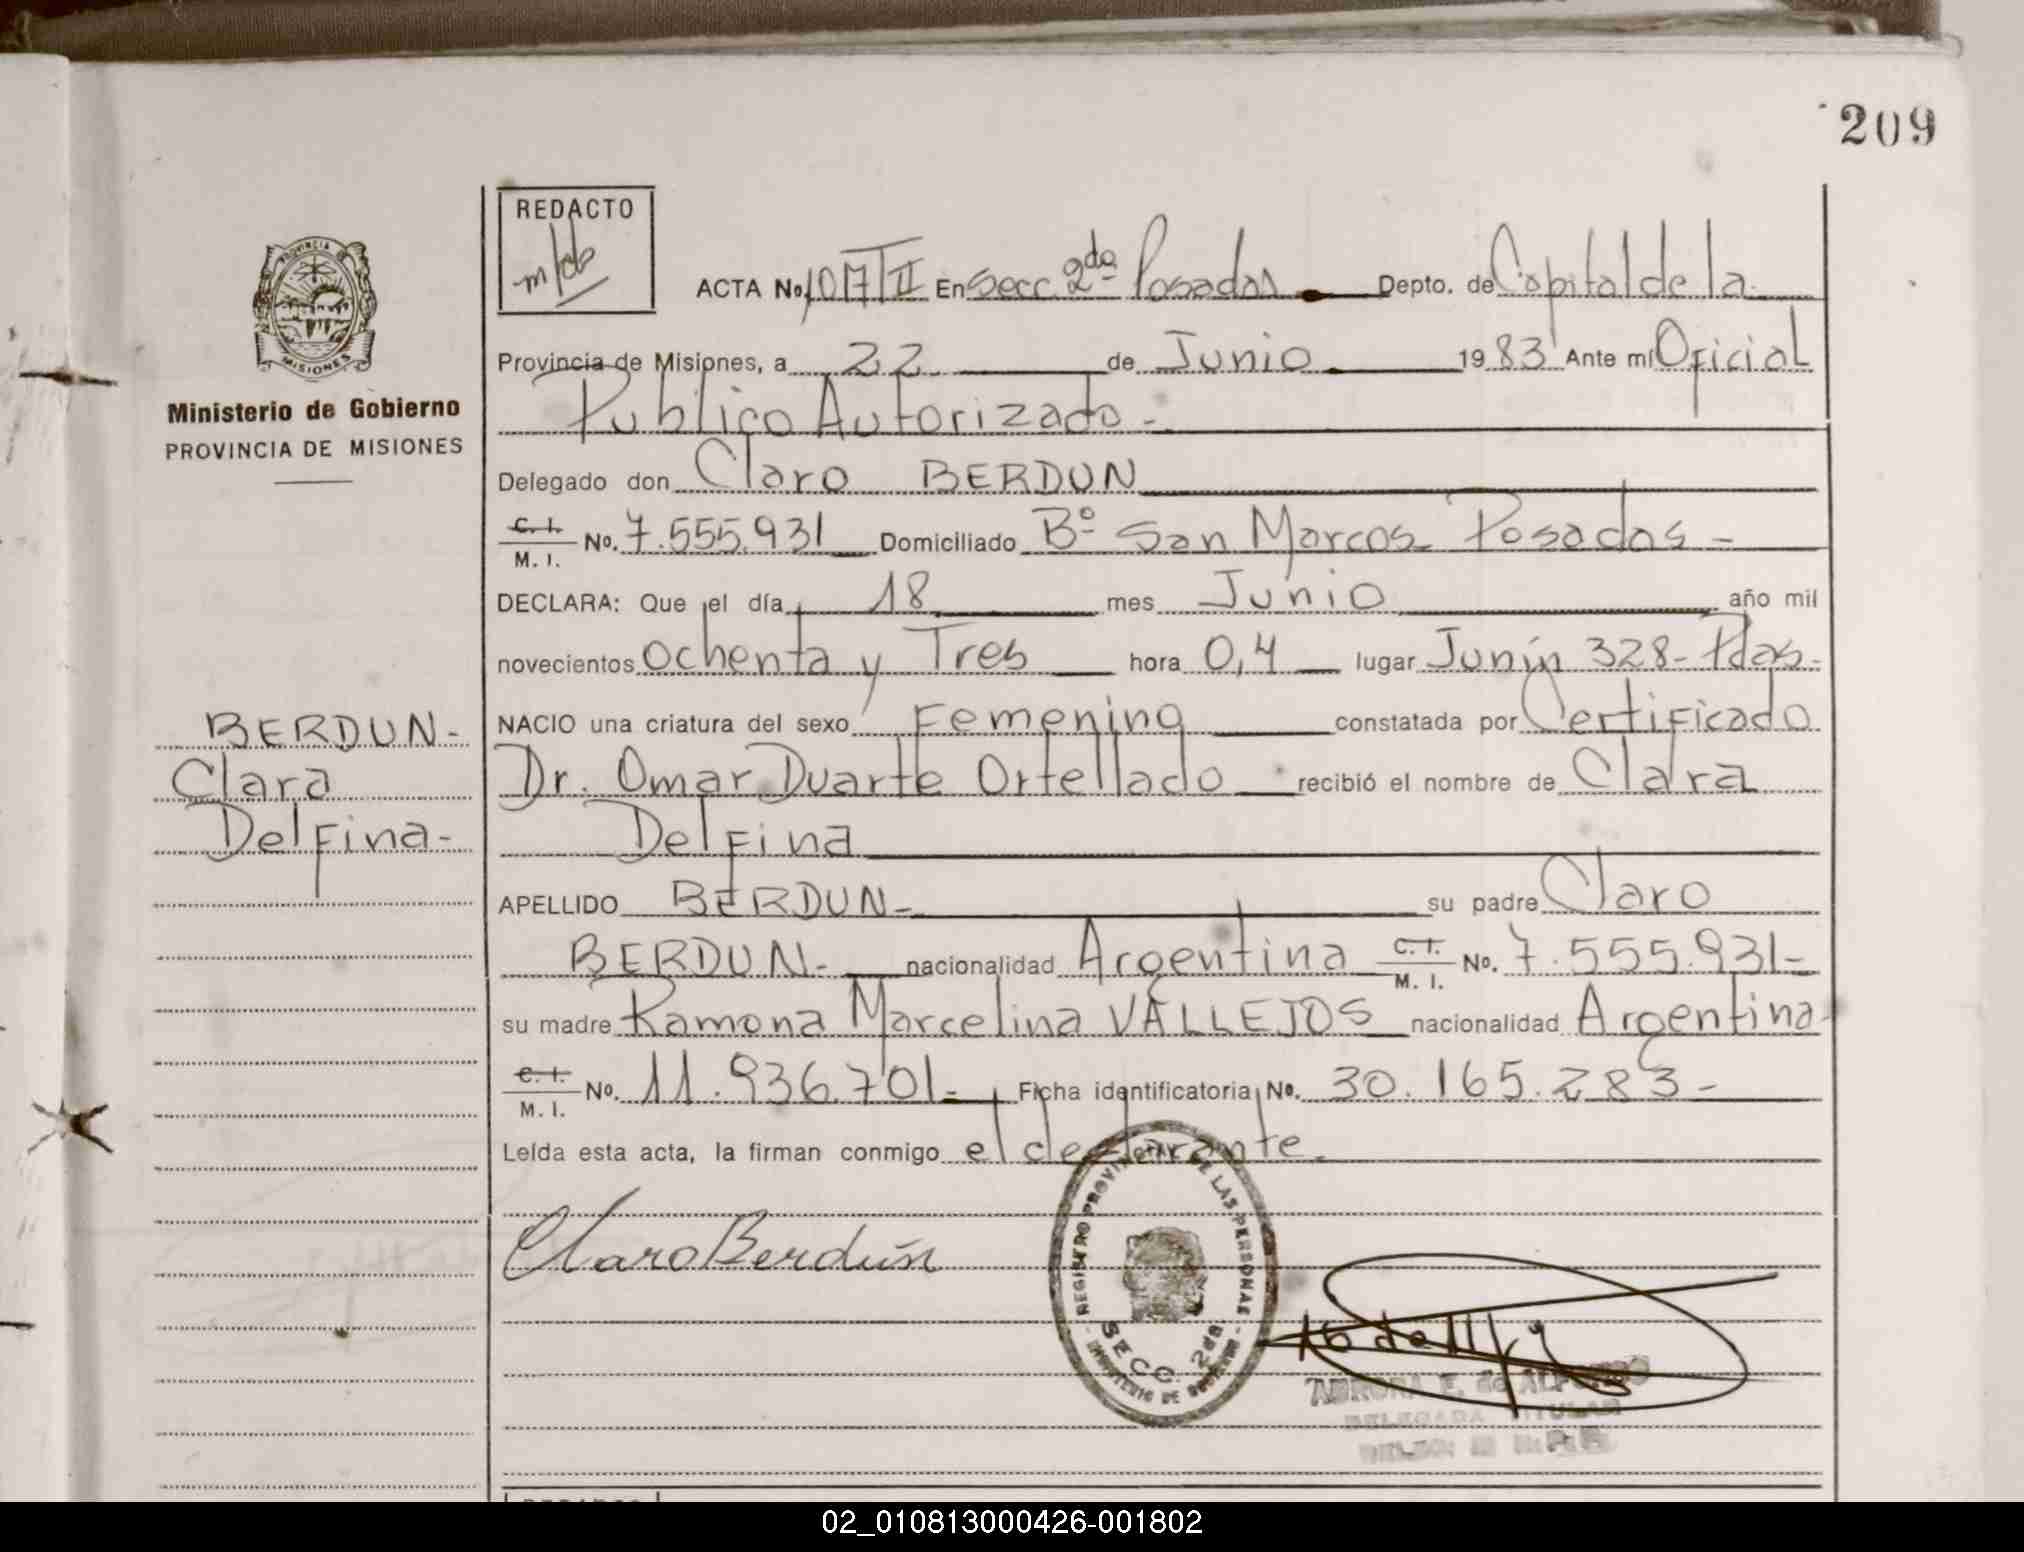 209
REDACTO
m/db
ACTA No. 1017/II En Secc. 2da Posadas Depto. de Capital de la
Provincia de Misiones, a 22 de Junio 1983 Ante mi Oficial
Publico Autorizado -
Delegado don Claro BERDUN
C. I. M. I. No. 7.555.931 Domiciliado Bº San Marcos Posadas -
DECLARA: Que el día 18 mes Junio año mil
novecientos ochenta y Tres hora 0,4 lugar Junín 328- Pdas-
NACIO una criatura del sexo Femenino constatada por Certificado
Dr. Omar Duarte Ortellado recibió el nombre de Clara
Delfina
APELLIDO BERDUN- su padre Claro
BERDUN- nacionalidad Argentina C. I. M. I. No. 7.555.931-
su madre Ramona Marcelina VALLEJOS nacionalidad Argentina-
C. I. M. I. No. 11.936.701- Ficha identificatoria No. 30.165.283-
Leída esta acta, la firman conmigo el declarante.
Claro Berdún
MISIONES
Ministerio de Gobierno
PROVINCIA DE MISIONES
BERDUN-
Clara
Delfina-
REGISTRO PROVINCIAL DE LAS PERSONAS
SECC. 2da
DELEGADA TITULAR
02_010813000426-001802